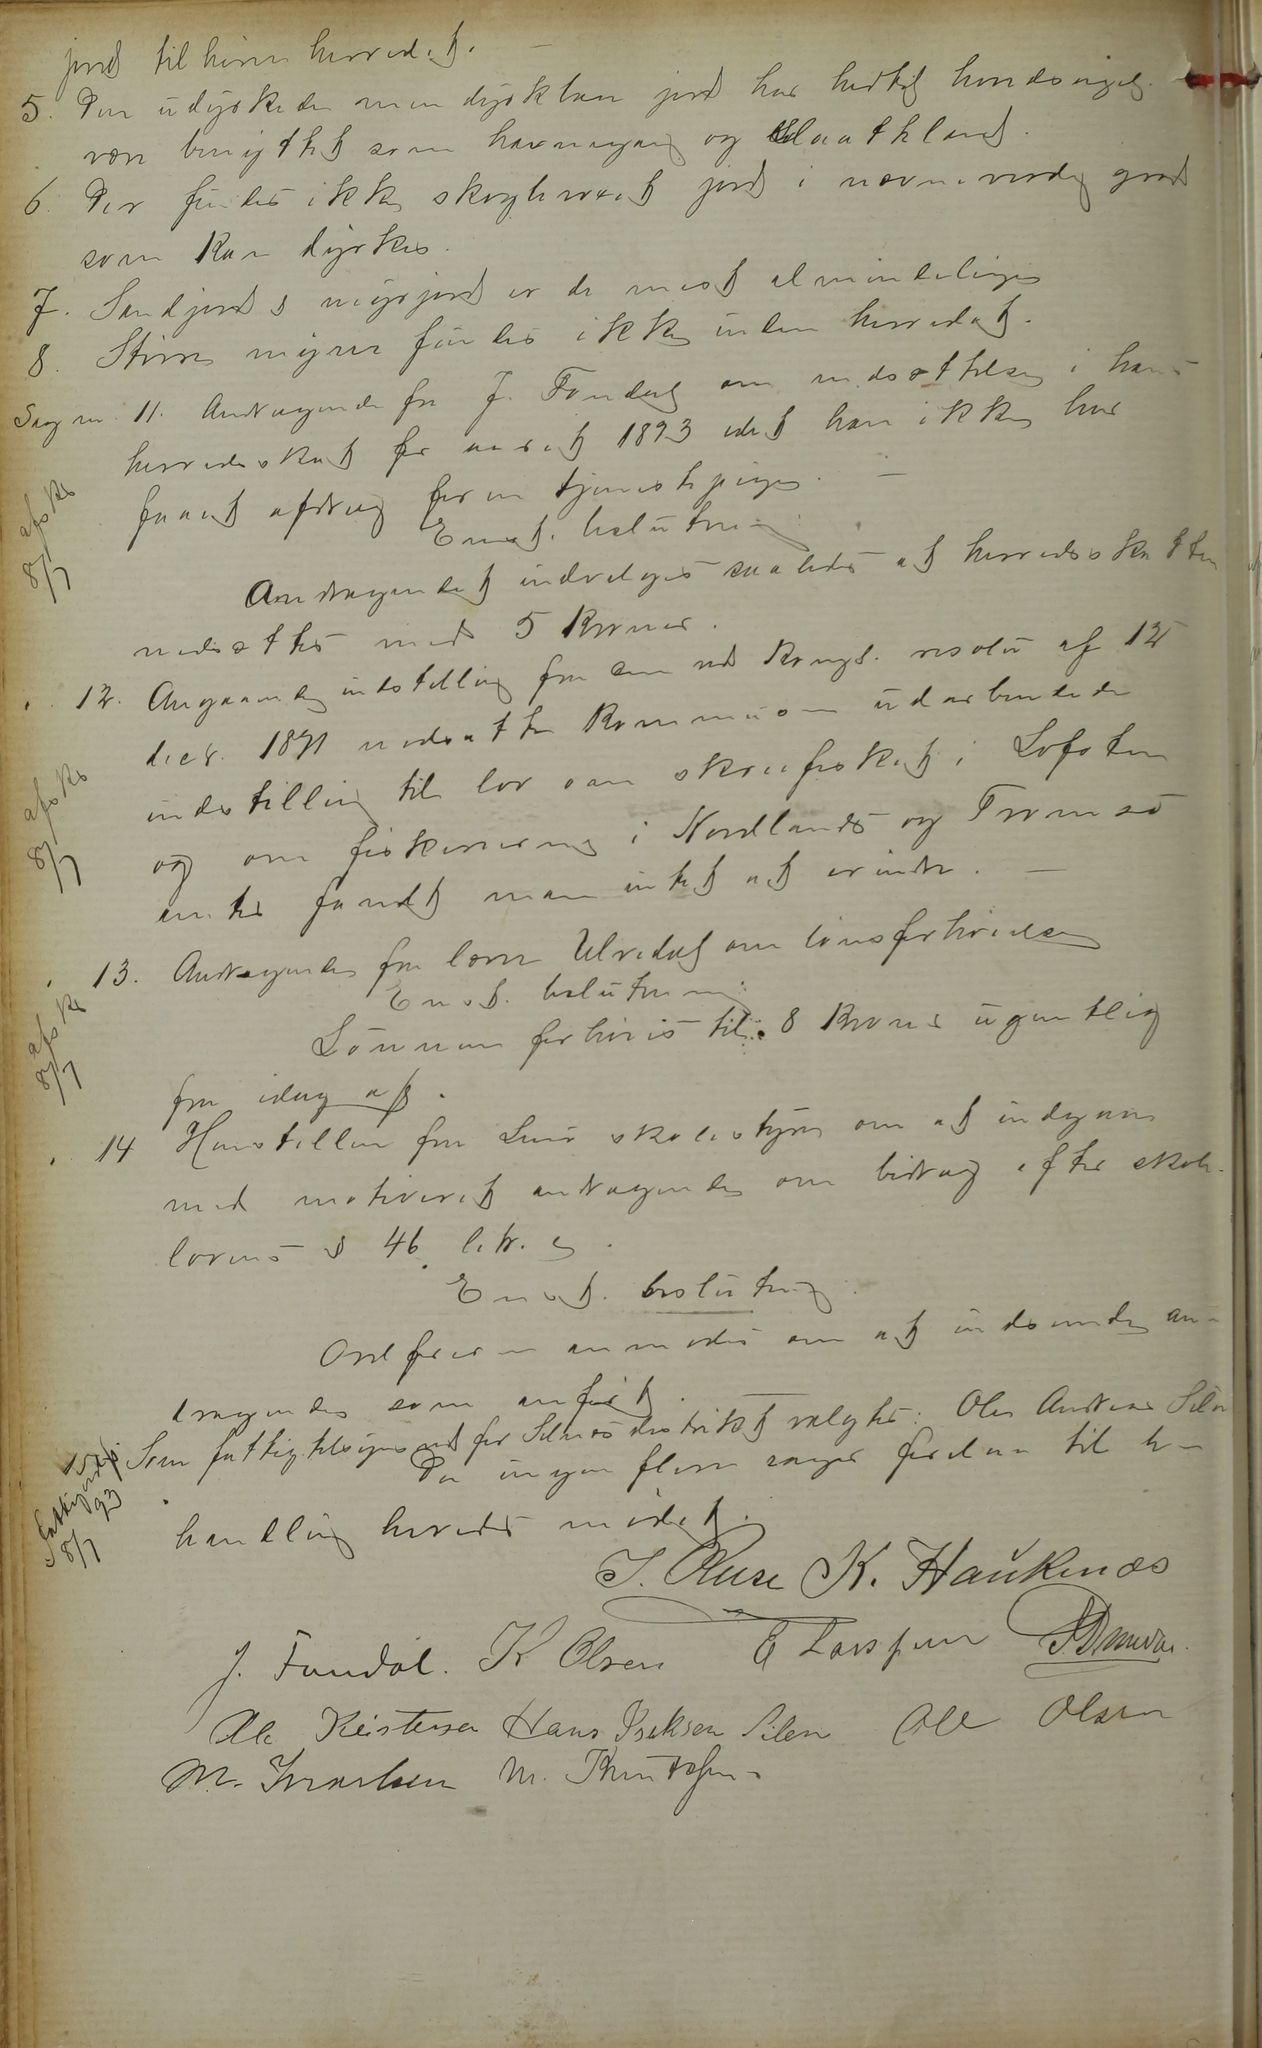 jord tilhører herredet. —
5. Den udyrkede men dyrkbare jord har hidtil hovedsagelig
være benyttet som havnegang og Slaatteland.
6. Der findes ikke skogbevoxet jord i nævneverdig grad
som kan dyrkes.
7. Sandjord & myrjord er de mest almindelige
8. Større myrer findes ikke inden herredet.
Sag nr. 11. Andragende fra J. Fondal om nedsættelse i hans
herredsskat for aaret 1893 idet han ikke har
faaet afdrag for en tjenestepige. —
Enst. beslutning:
Andragendet indvilges saaledes at herredsskatten
nedsættes med 5 Kroner.
afskr 8/7
" 12. Angaaende indstilling fra den ved Kongl. resolu af 12
decr. 1891 nedsatte Kommission udarbeidede
indstilling til lov om skreifisket i Lofoten
og om fiskerierne i Nordlands og Tromsø
amter fandt man intet at erindre. —
afskr 8/7
" 13. Andragende fra lærer Ulvedal om lønsforhøielse
Enst. beslutning
Lønnen forhøies til 8 Kroner ugentlig
fra idag af.
afskr 8/7
" 14 Henstillen fra Lurø skolestyre om at indgaa
med motiveret andragende om bidrag efter skole-
lovens § 46 litr. e.
Enst. beslutning.
Ordføreren anmodes om at indsende an-
dragendet som anført. —
15. Som fattigtilsynsmd for Selnæs distrikt valgtes: Ole Andreas Silen
Da ingen flere sager forelaa til be-
handling hævedes mødet.
8/7 93
J. Kruse K. Haukenæs
J. Fondal. K Olsen E Larssen
Ole Kristensen Hans Isaksen Silen Ole Olsen
M. Ivarsen M. Knutssen